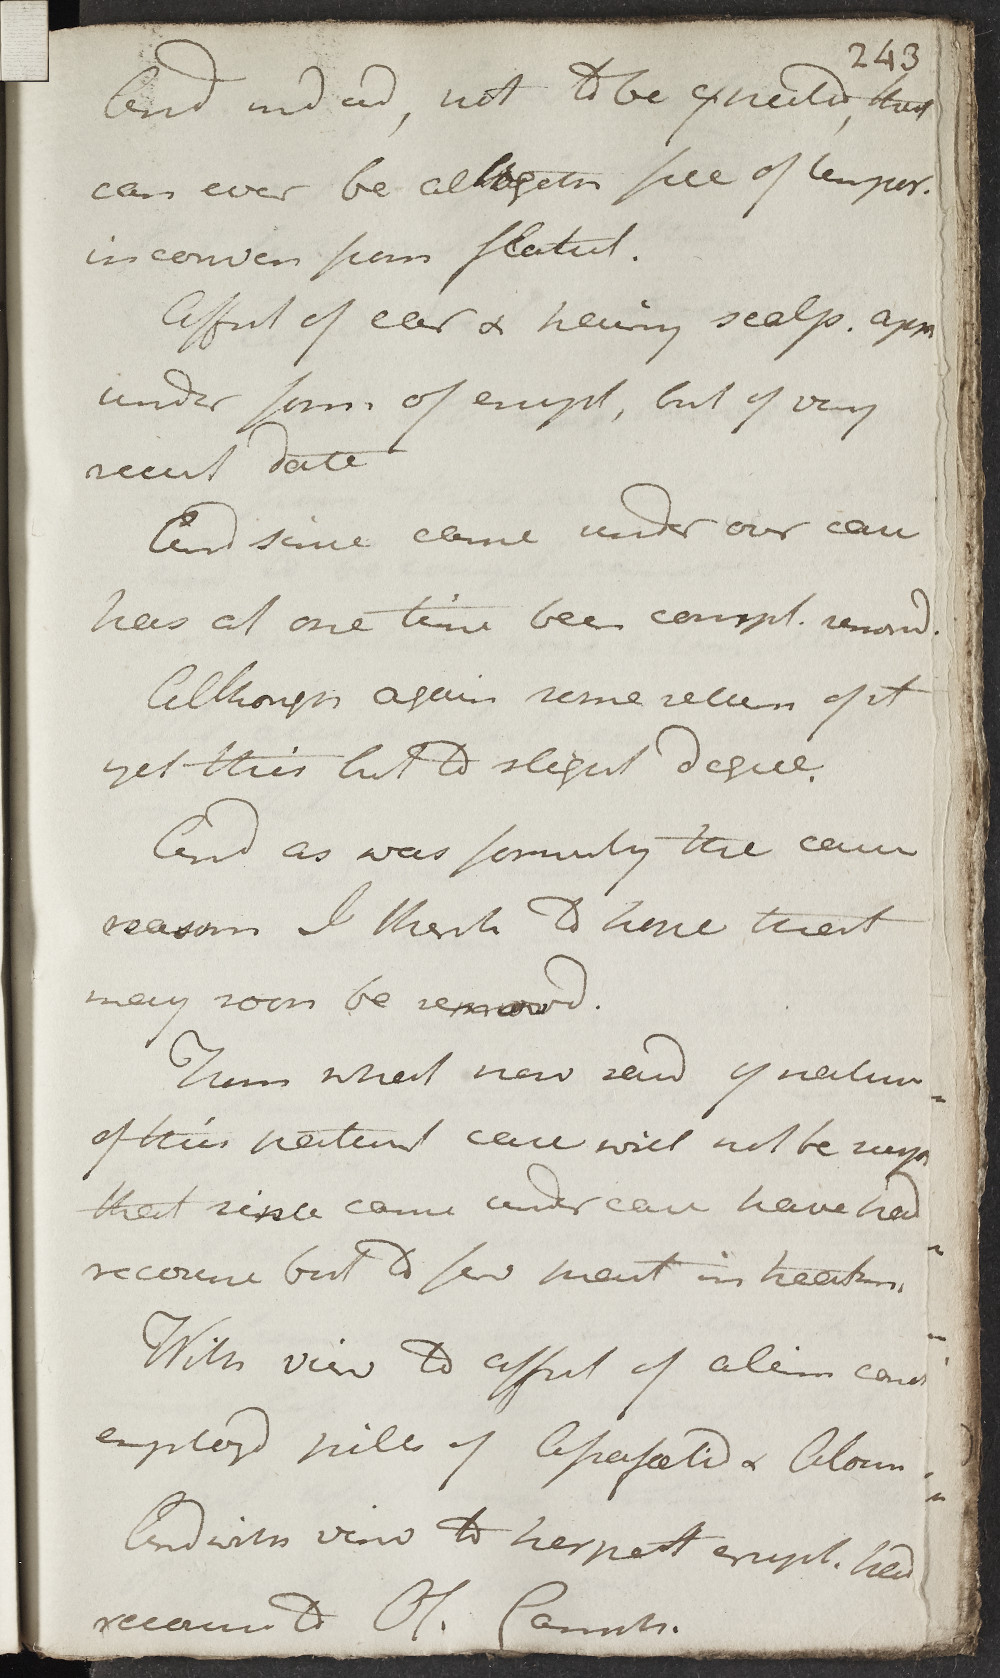 243
And ind ad, not to be expected, that
can ever be altogeth free of tempor.
inconven from flatul.
Affect of ear & hairy scalp. app
under form of erupt, but of very
recent date
And since came under our care
has at one time been compl. remov'd.
Although again some return of it
yet this but to slight degree.
And as was formerly the case
reason I think to hope that
may soon be removd.
From what now said of nature
of this patient case will not be surp
that since came under care have had
recourse but to few meat in healin.
With view to affect of alim canal
employd pills of Assafoetid & Aloun.
And with view to herpet erupt. had
recourse to Ol. Camph.